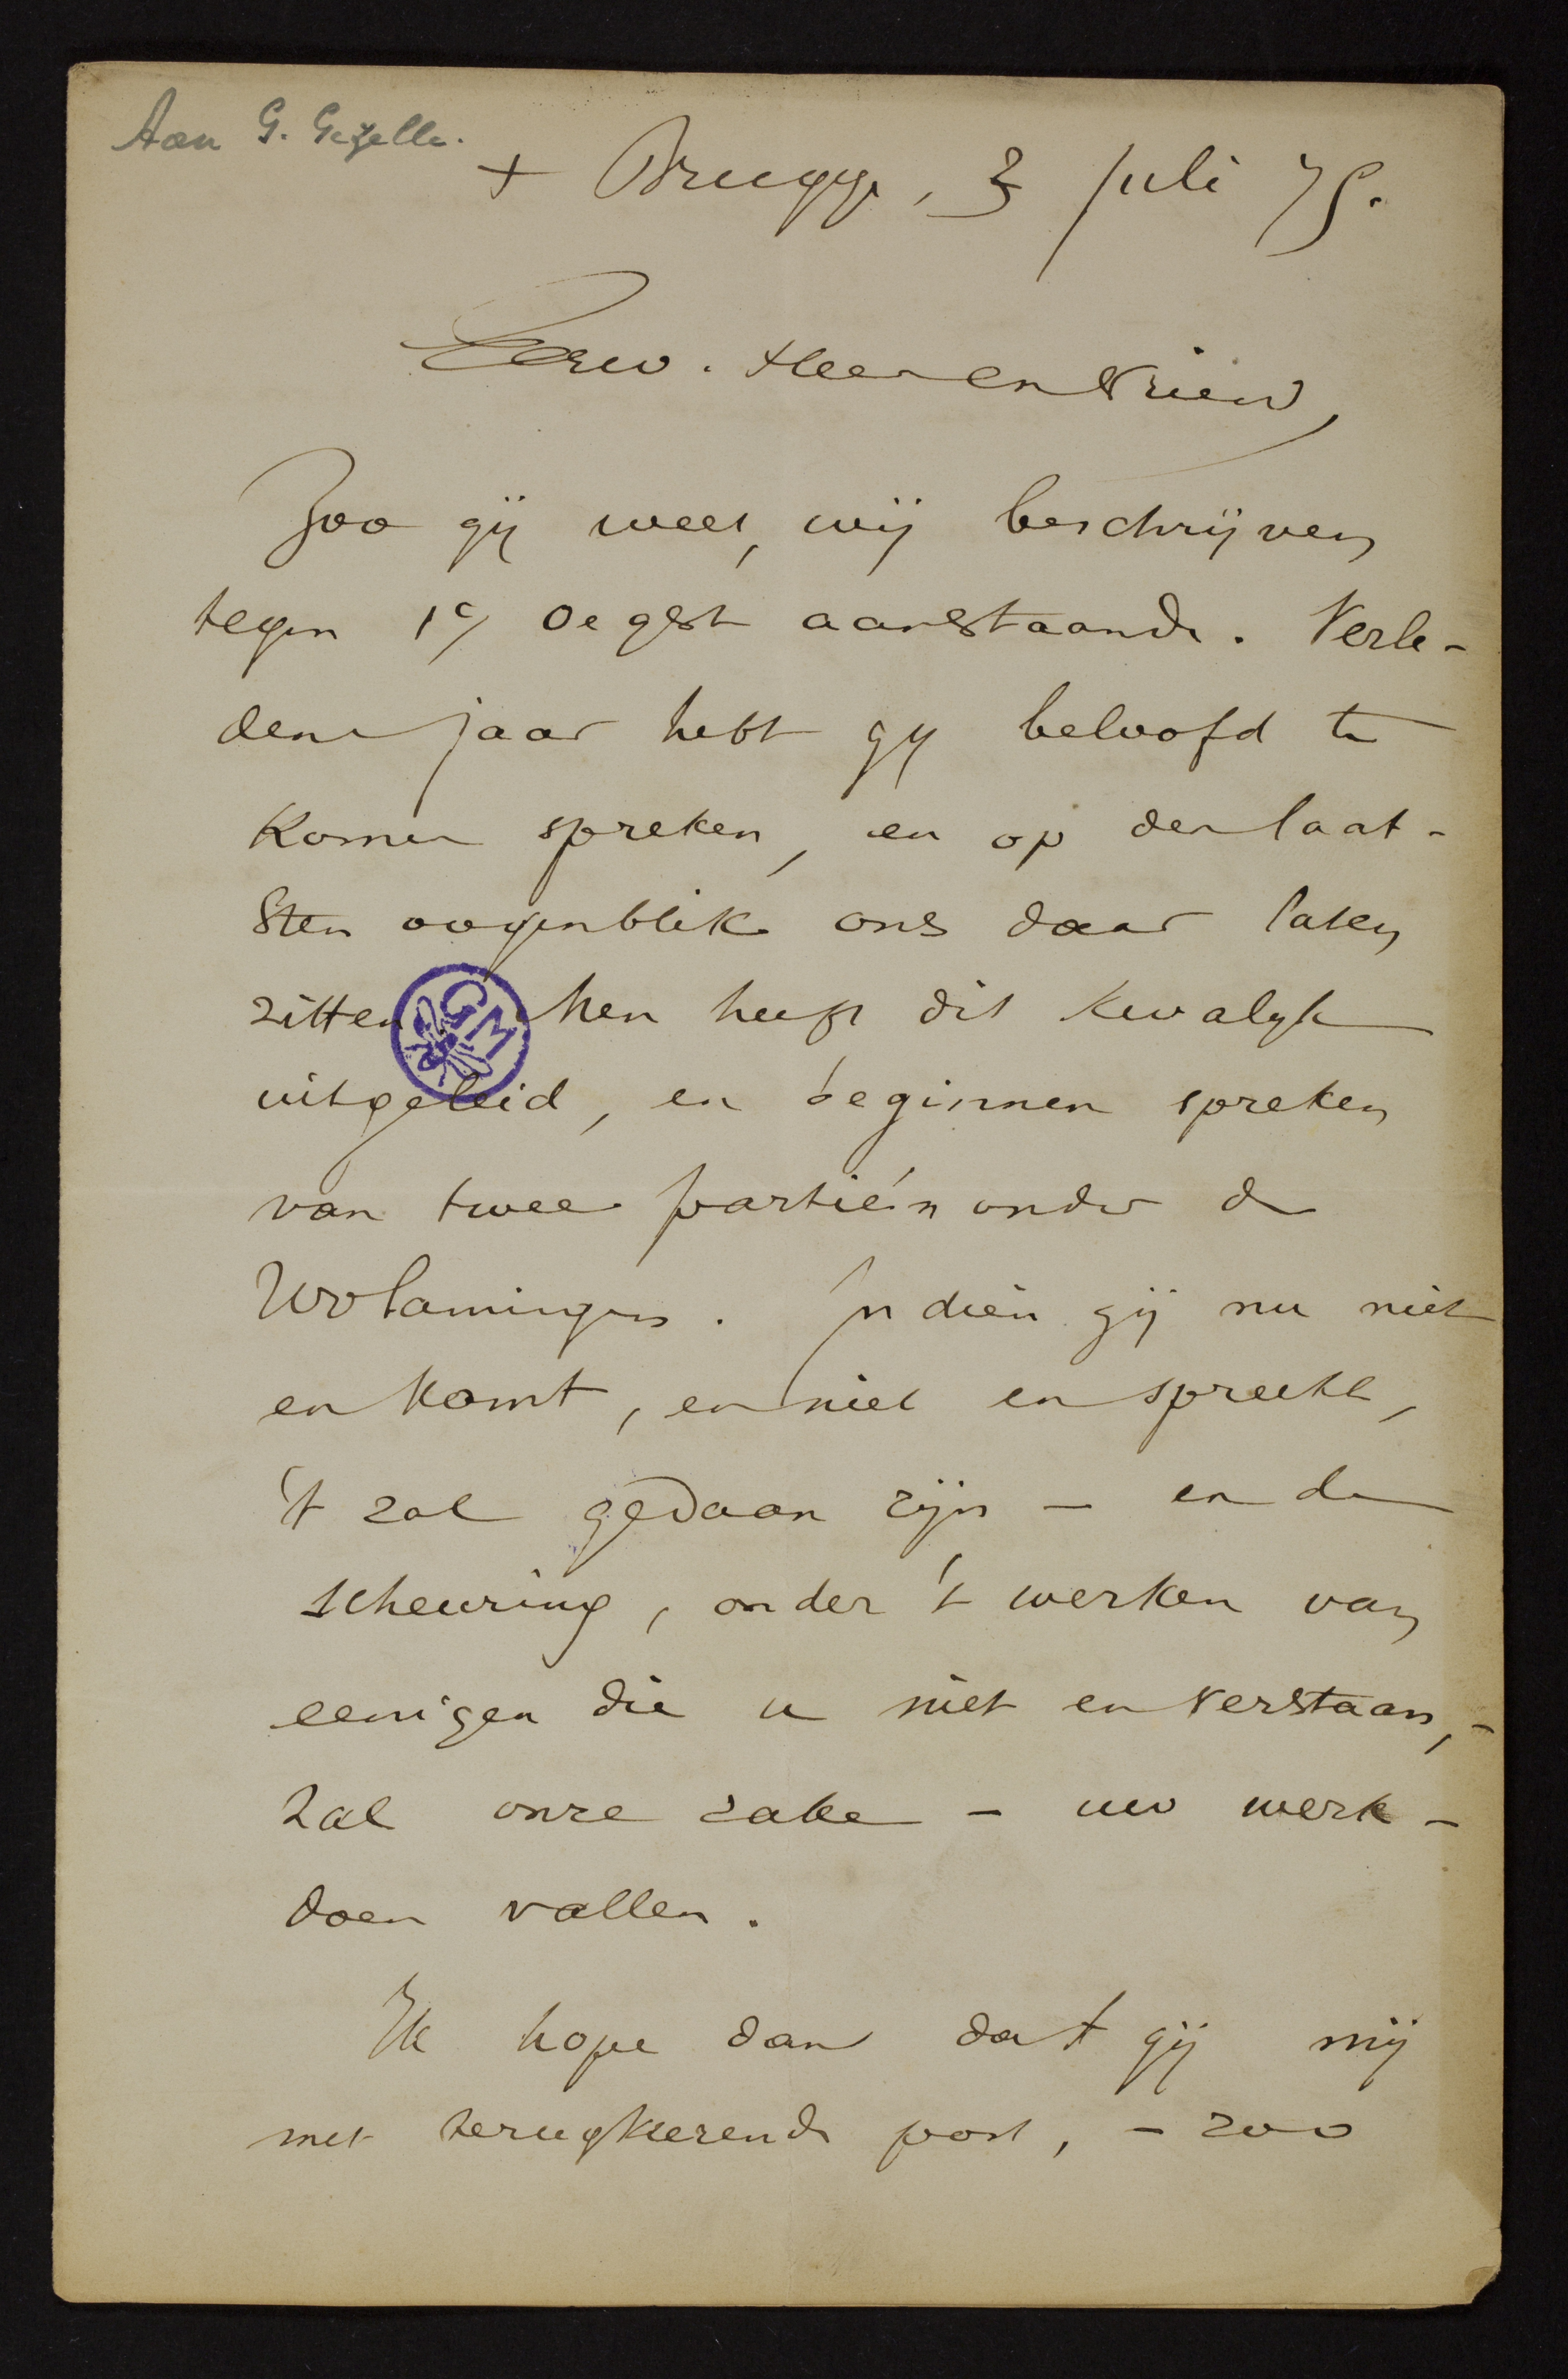 Aan G. Gezelle.
+ Brugge, 3 juli 75.
Eerw. Heer en Vriend,
Zoo gij weet, wij beschrijven
tegen 19 Oegst aanstaande. Verle-
den jaar hebt gij beloofd te
komen spreken, en op den laat-
sten oogenblik ons daar laten
zitten Men heeft dit kwalijk
GM
uitgeleid, en beginnen spreken
van twee partiën onder de
Wvlamingen. Indien gij nu niet
en komt, en niet en spreekt,
't zal gedaan zijn – en de
scheuring, onder 't werken van
eenigen die u niet en verstaan, -
zal onze zake – uw werk –
doen vallen.
Ik hope dan dat gij mij
met terugkeerende post, – zoo